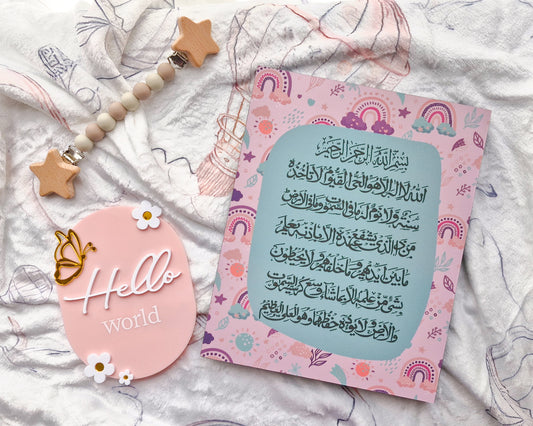 Hello
world
بسم الله الرحمن الرحيم
الله لا إله إلا هو الحي القيوم لا تأخذه
سنة ولا نوم له ما في السموت وما في الأرض
من ذا الذي يشفع عنده إلا بإذنه يعلم
ما بين أيديهم وما خلفهم ولا يحيطون
بشيء من علمه إلا بما شاء وسع كرسيه السموت
والأرض ولا يؤده حفظهما وهو العلي العظيم